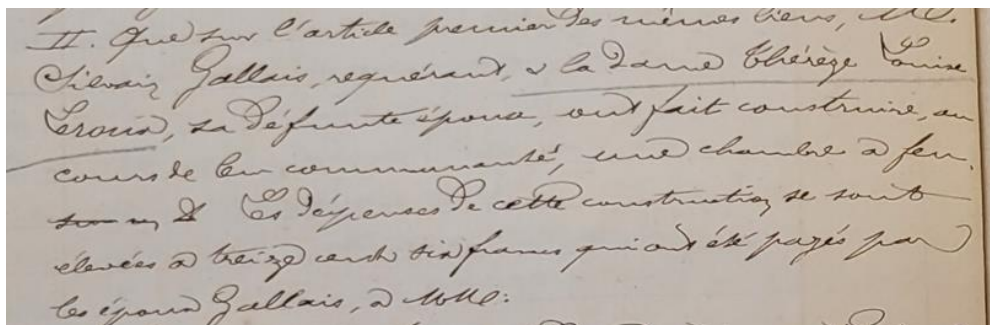 II. Que sur l'article premier des mêmes biens, M.
Silvain Gallais, requérant, & la dame Thérèze Louise
Leroux, sa défunte épouse, ont fait construire, au
cours de leur communauté, une chambre à feu.
Les dépenses de cette construction se sont
élevées à treize cent six francs qui ont été payés par
les époux Gallais, à MM: